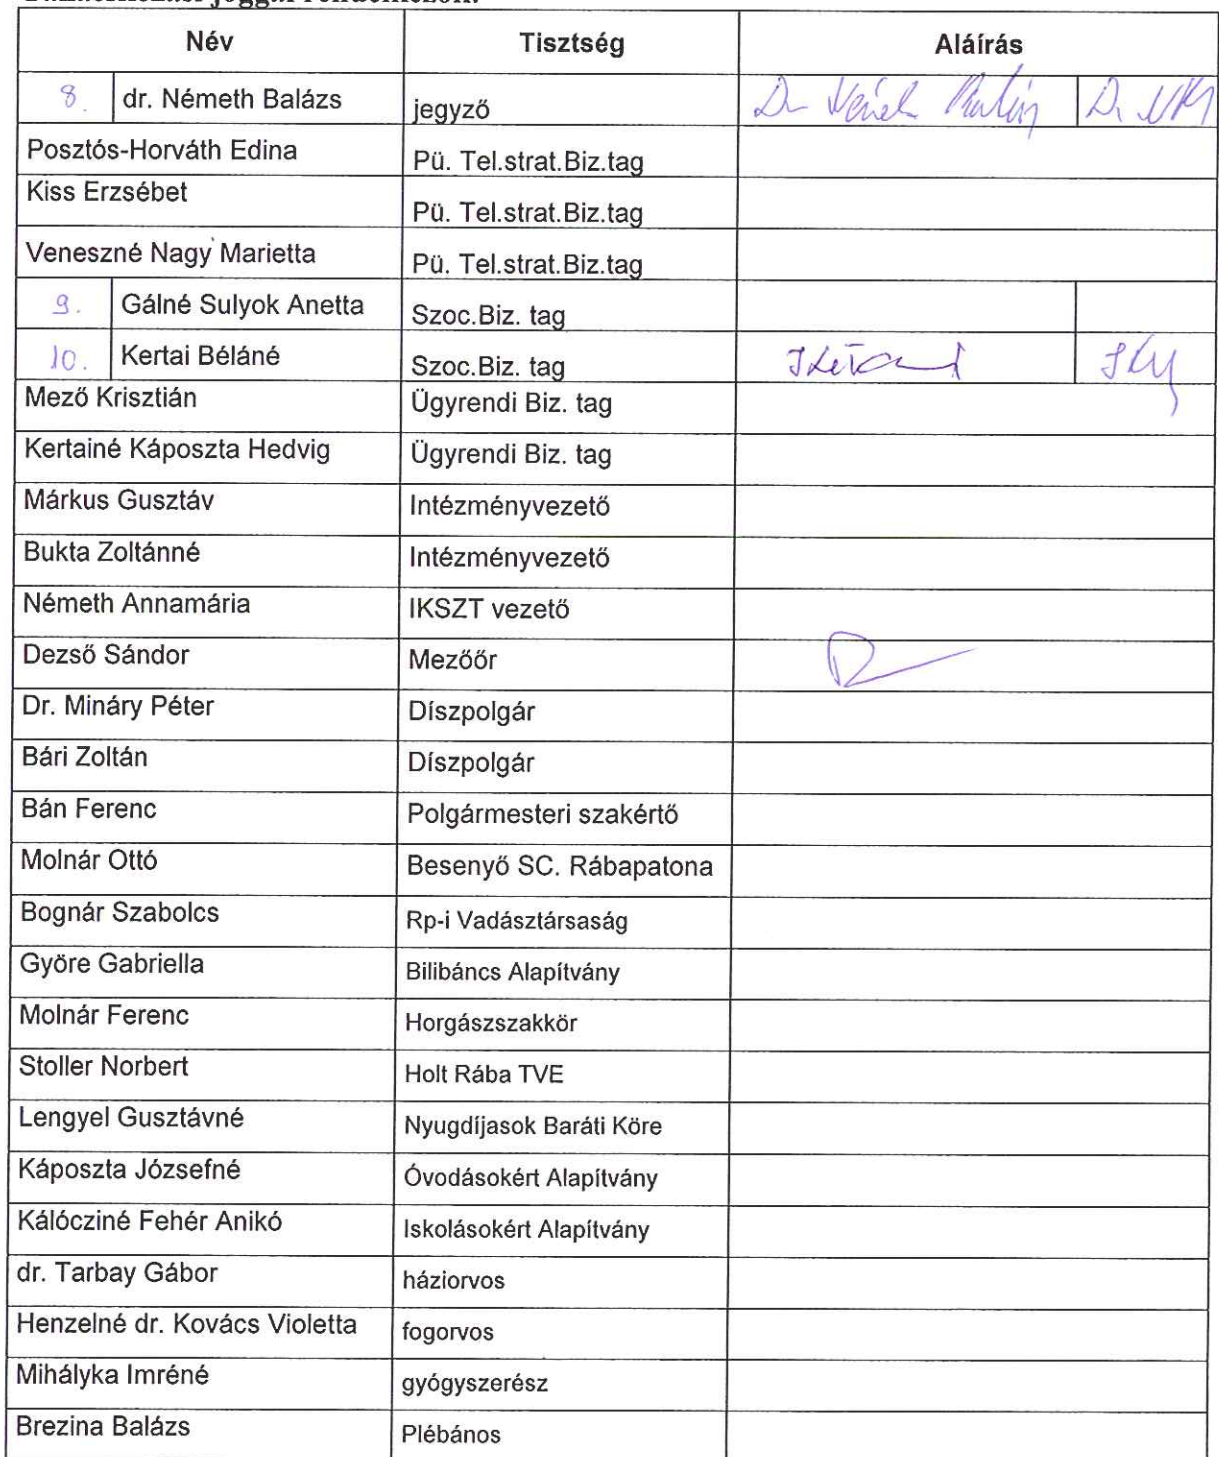 Név Tisztség Aláírás
8. dr. Németh Balázs jegyző Dr Németh Balázs
Posztós-Horváth Edina Pü. Tel.strat.Biz.tag
Kiss Erzsébet Pü. Tel.strat.Biz.tag
Veneszné Nagy Marietta Pü. Tel.strat.Biz.tag
9. Gálné Sulyok Anetta Szoc.Biz. tag
10. Kertai Béláné Szoc.Biz. tag
Mező Krisztián Ügyrendi Biz. tag
Kertainé Káposzta Hedvig Ügyrendi Biz. tag
Márkus Gusztáv Intézményvezető
Bukta Zoltánné Intézményvezető
Németh Annamária IKSZT vezető
Dezső Sándor Mezőőr
Dr. Mináry Péter Díszpolgár
Bári Zoltán Díszpolgár
Bán Ferenc Polgármesteri szakértő
Molnár Ottó Besenyő SC. Rábapatona
Bognár Szabolcs Rp-i Vadásztársaság
Györe Gabriella Bilibáncs Alapítvány
Molnár Ferenc Horgászszakkör
Stoller Norbert Holt Rába TVE
Lengyel Gusztávné Nyugdíjasok Baráti Köre
Káposzta Józsefné Óvodásokért Alapítvány
Kálócziné Fehér Anikó Iskolásokért Alapítvány
dr. Tarbay Gábor háziorvos
Henzelné dr. Kovács Violetta fogorvos
Mihályka Imréné gyógyszerész
Brezina Balázs Plébános